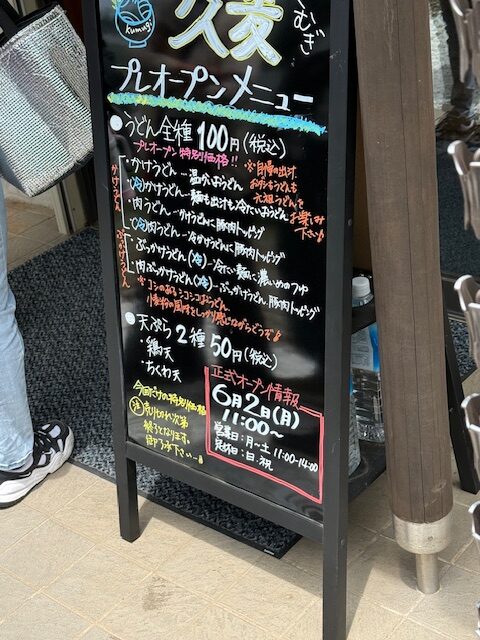 kumugi
久麦
こむぎ
プレオープンメニュー
●うどん全種100円(税込)
プレオープン特別価格!!
かけうどん
・かけうどん-温かいおうどん
・(冷)かけうどん-麺も出汁も冷たいおうどん
・肉うどん-かけうどんに豚肉トッピング
・(冷)肉うどん-冷かけうどんに豚肉トッピング
※自慢の出汁
元祖うどんを
お楽しみ
下さい
ぶっかけうどん
・ぶっかけうどん(冷)-冷たい麺に濃いめのつゆ
・肉ぶっかけうどん(冷)-ぶっかけうどん、豚肉トッピング
※コシのあるシコシコおうどん
小麦粉の風味をしっかり感じながらどうぞ
●天ぷら2種50円(税込)
・鶏天
・ちくわ天
今回だけの特別価格
(注)売り切れ次第
終了となります。
御了承下さいー
正式オープン情報
6月2日(月)
11:00~
営業日:月~土 11:00-14:00
定休日:日、祝